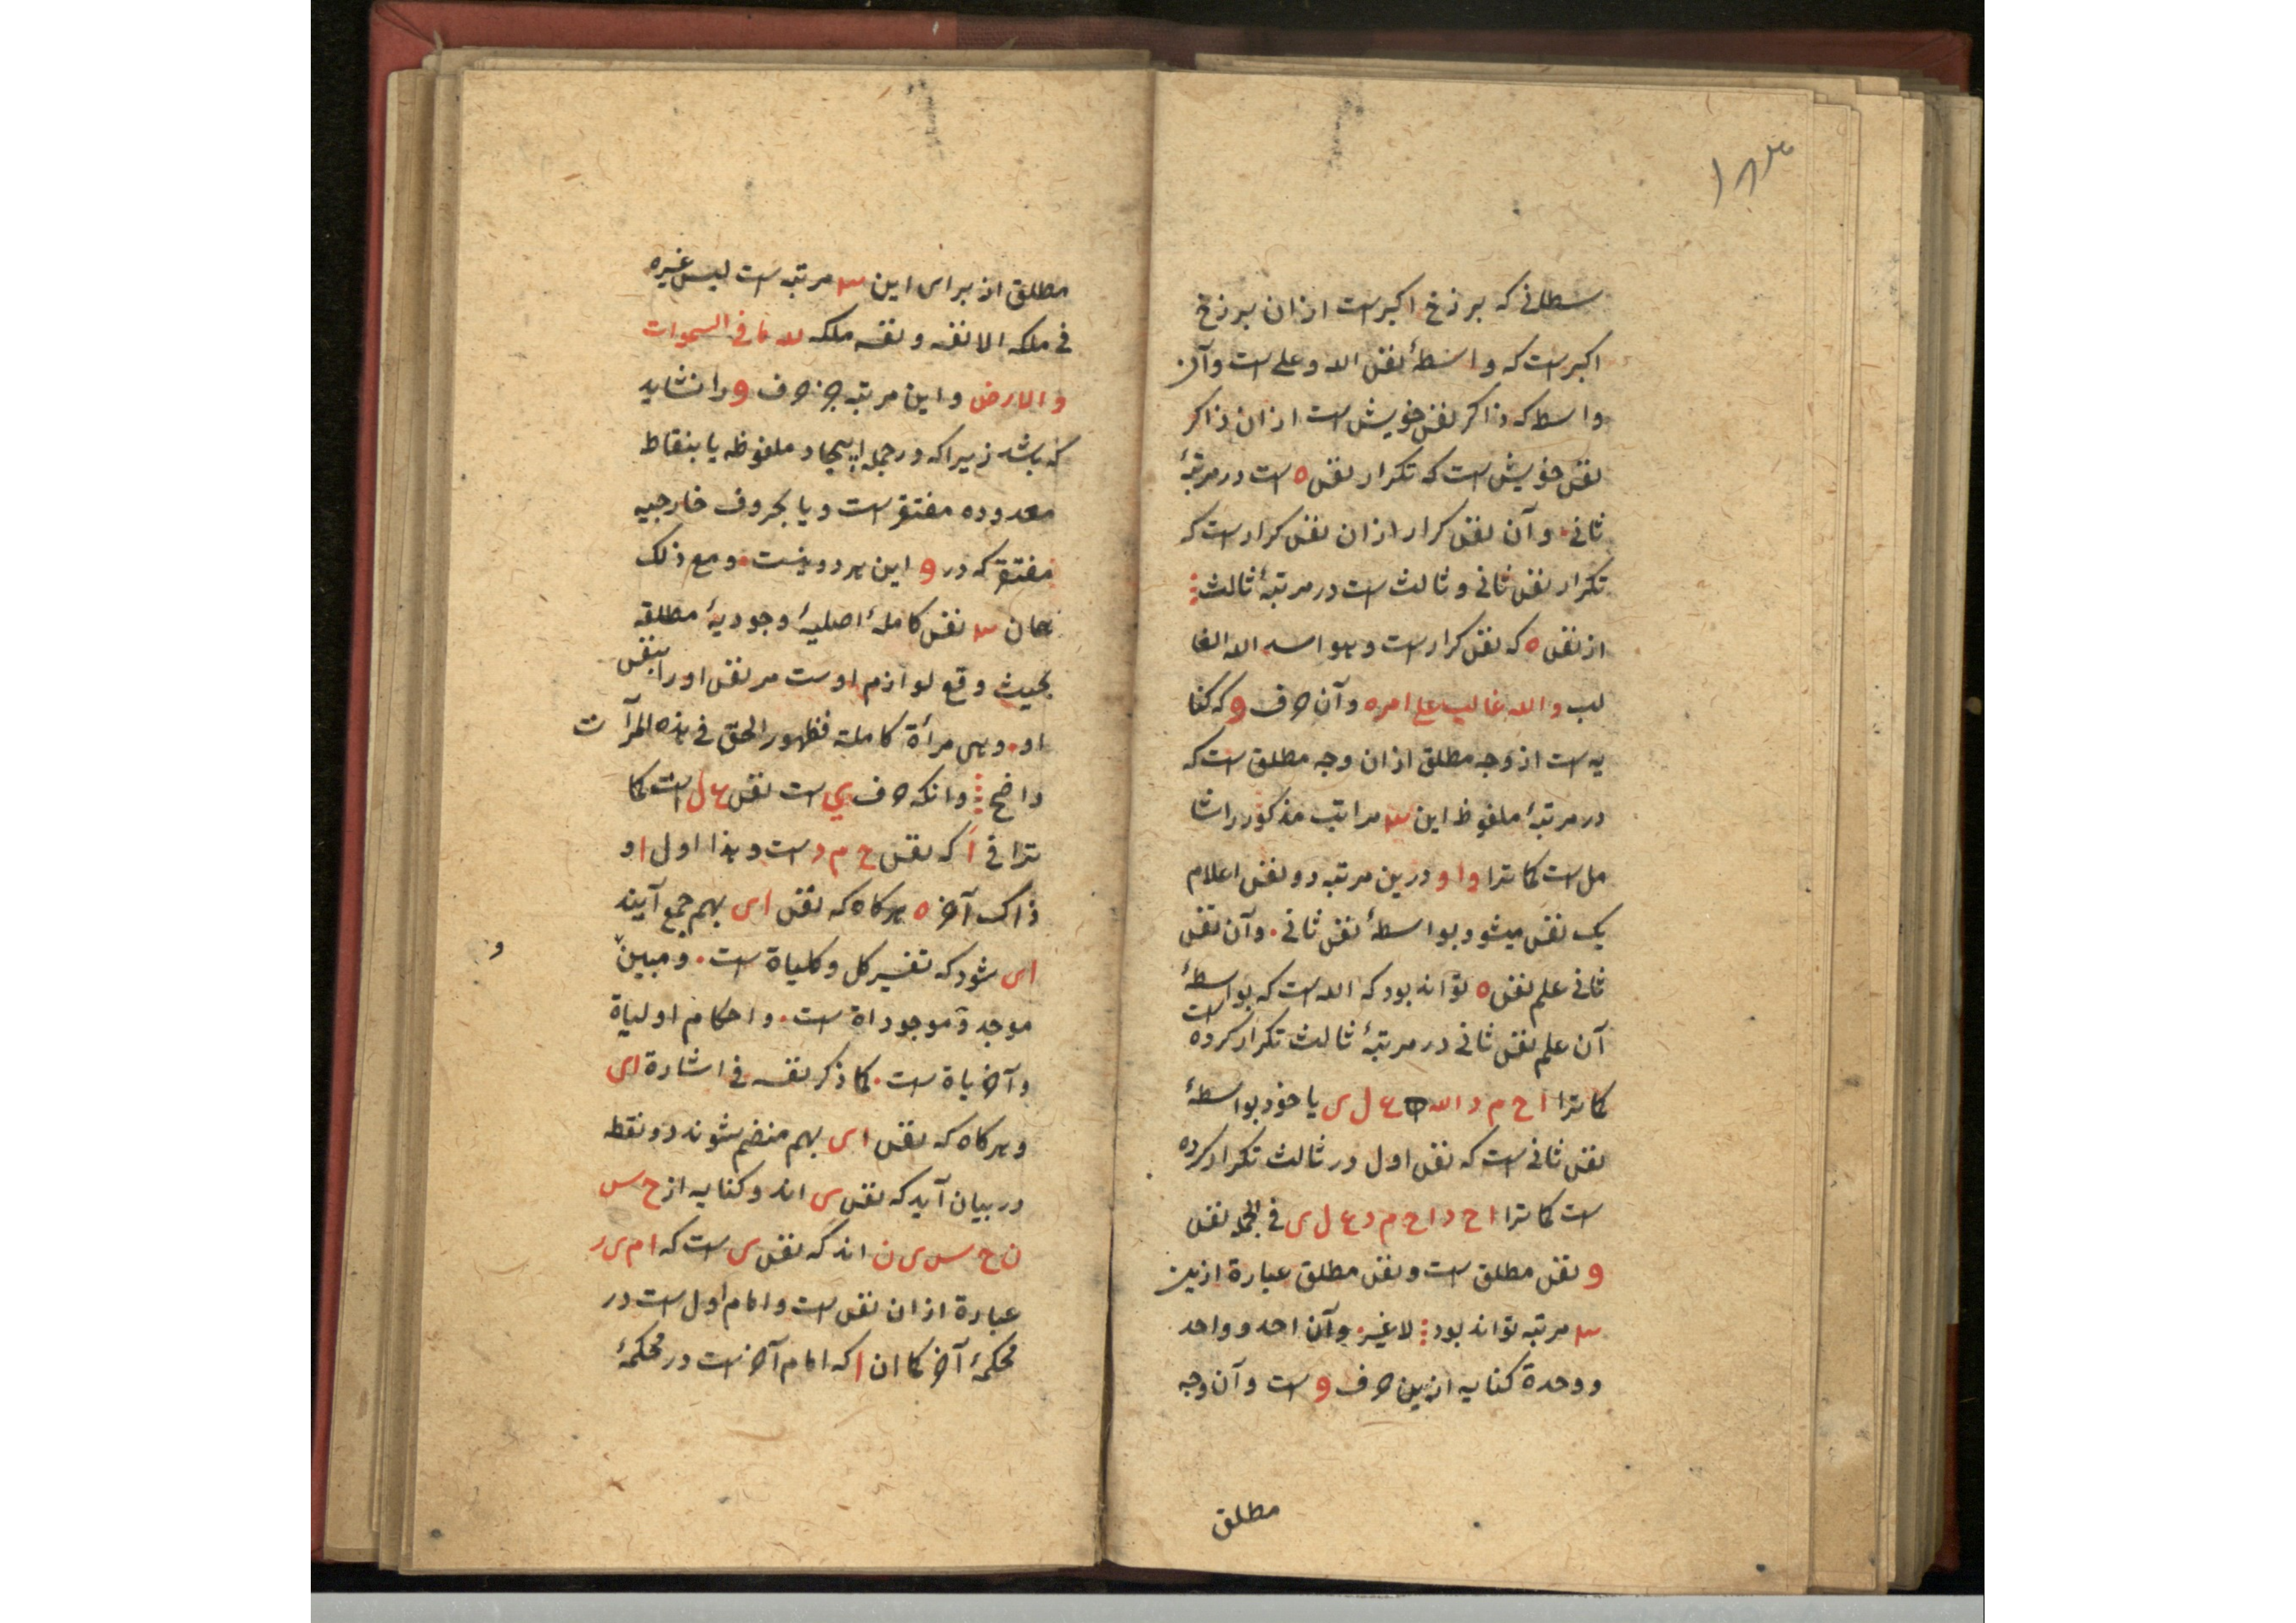 ۱۸۳
سطانی که برزخ اکبرست ازان برزخ
اکبرست که واسطهٔ نفس الله و علی ست وآن
واسطه که ذاکر نفس خویش ست ازان ذاکر
نفس خویش ست که تکرار نفس ه ست در مرتبهٔ
ثانی. وآن نفس کرار ازان نفس کرارست که
تکرار نفس ثانی و ثالث ست در مرتبهٔ ثالث
از نفس ه که نفس کرارست و هو اسد الله الغا
لب والله غالب علی امره وآن حرف و که کنا
یه ست از وجه مطلق ازان وجه مطلق ست که
در مرتبهٔ ملفوظ این سه مراتب مذکور را شا
مل ست کما ترا واو درین مرتبه دو نفس اعلام
یک نفس میشود بواسطهٔ نفس ثانی. وآن نفس
ثانی علم نفس ه تواند بود که الله ست که بواسطهٔ
آن علم نفس ثانی در مرتبهٔ ثالث تکرار کرده ست
کما ترا ا ح م د الله ع ل ی یا خود بواسطهٔ
نفس ثانی ست که نفس اول در ثالث تکرار کرده
ست کما ترا ا ح د ا ح م د ع ل ی فی الجمله نفس
و نفس مطلق ست و نفس مطلق عبارة ازین
سه مرتبه تواند بود لاغیر. وآن احد و واحد
و وحدة کنایه ازین حرف و ست وآن وجه
مطلق
مطلق از برای این سه مرتبه ست لیس غیره
فی ملکه الا نفسه و نفسه ملکه لله ما فی السموات
والارض و این مرتبه جز حرف و را نشاید
که باشد زیرا که در جمله ایجاد ملفوظه یا بنقاط
معدوده مفتقرست و یا بحروف خارجیه
مفتقر که در و این هر دو نیست. و مع ذلک
همان سه نفس کاملهٔ اصلیهٔ وجودیهٔ مطلقه
بحیث وقع لوازم اوست مر نفس او را بنفس
او. وهی مرأة کاملة فظهور الحق فی هذه المرآت
واضح وانکه حرف ی ست نفس ع ل ست کما
ترا فی ا که نفس ح م د ست و هذا اول او
ذاک آخر ه هرکاه که نفس ای بهم جمع آیند
ای شود که تفسیر کل و کلیاة ست. و مبین
و
موجد و موجوداة ست. و احکام اولیاة
وآخریاة ست. کما ذکر نفسه فی اشارة ای
و هرکاه که نفس ای بهم منضم شوند دو نقطه
در بیان آید که نفس ی اند و کنایه از ح س
ن ح س ی ن اند که نفس ی ست که ا م ی ر
عبارة ازان نفس ست و امام اول ست در
محکمهٔ آخر کما ان ا که امام آخرست در محکمهٔ